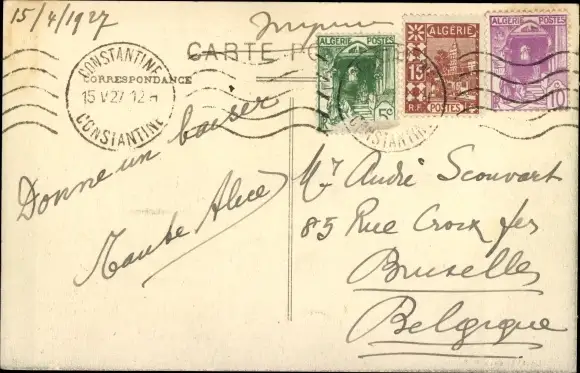 15/4/1927
Imprimé
CARTE POSTALE
CORRESPONDANCE
CONSTANTINE
15 V 27 12
CONSTANTINE
ALGÉRIE POSTES
5c
ALGÉRIE
15c
R.F. POSTES
ALGÉRIE POSTES
10c
CONSTANTINE
Donne un baiser
Tante Alice
Mr André Scouvart
85 Rue Croix fer
Bruxelles
Belgique